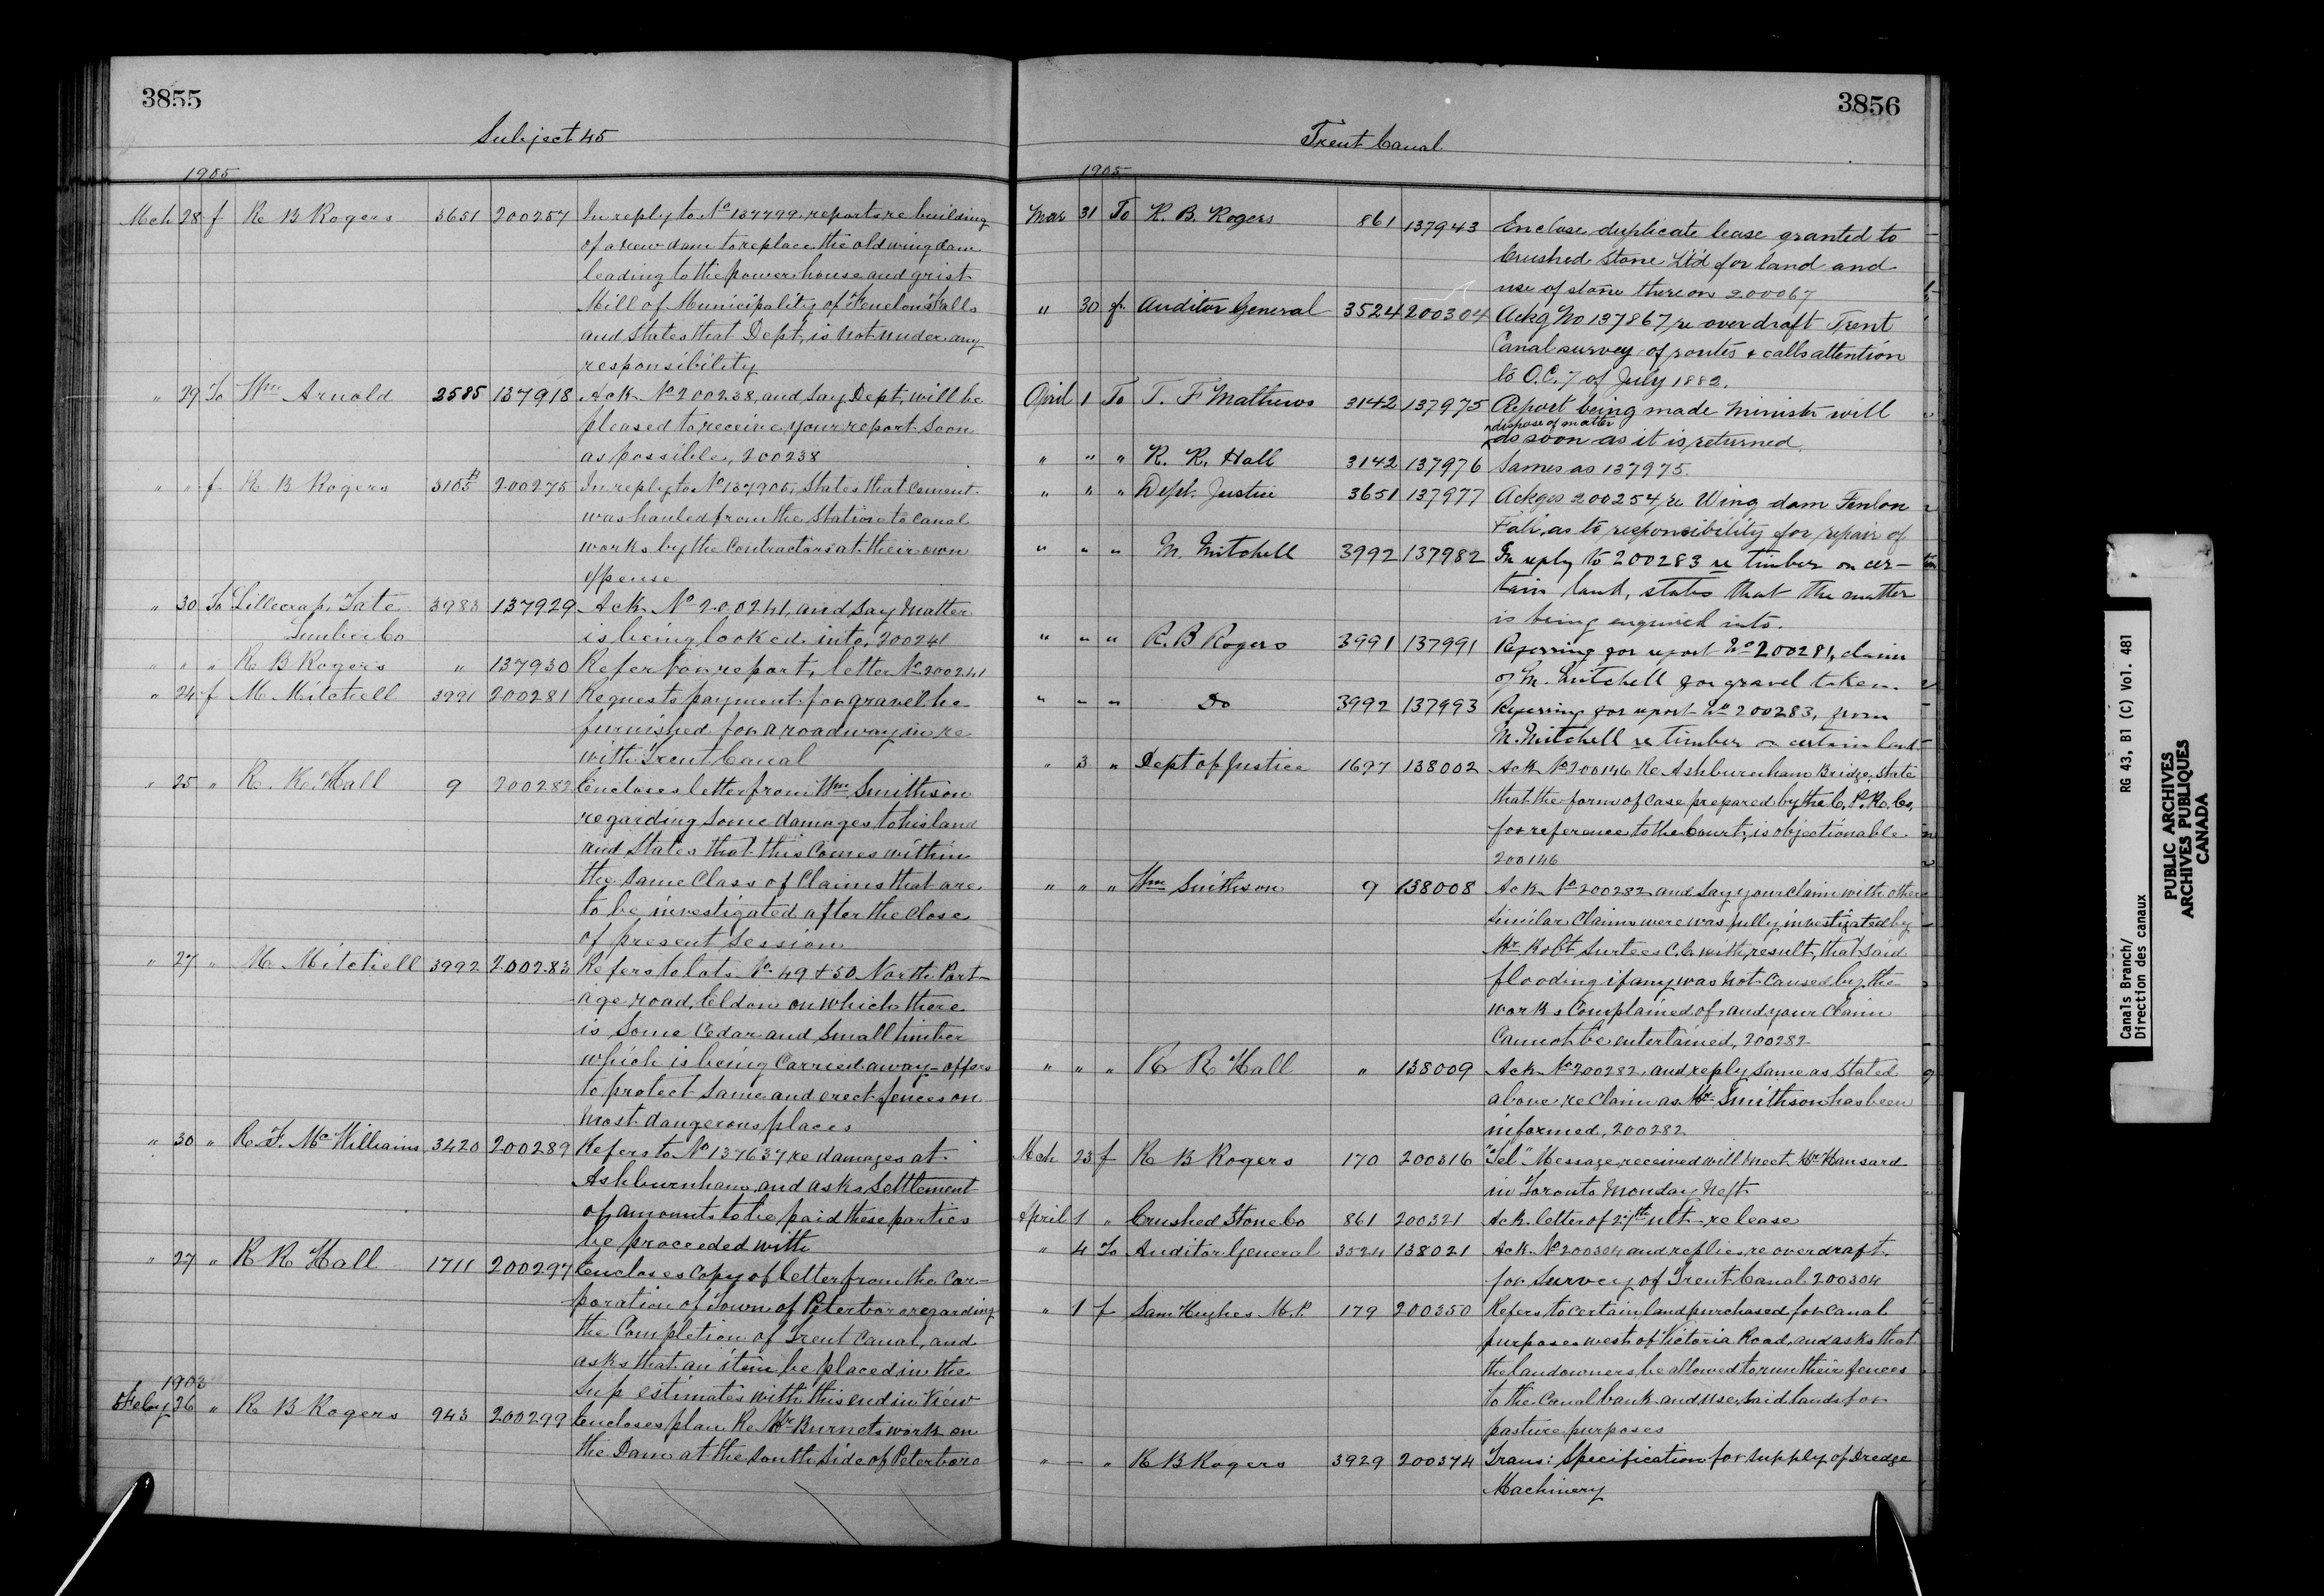 3855
Subject 45
1905
Mch 28 f R B Rogers 3651 200257 In reply to No 137799 reports re building
of a new dam to replace the old wing dam
leading to the power house and grist
Mill of Municipality of Fenelon Falls
and states that Dept, is not under any
responsibility
" 29 To Wm Arnold 2585 137918 Ack No 200238, and say Dept, will be
pleased to receive your report soon
as possible, 200238
" " f R B Rogers 200275 In reply to No 137905, states that cement
was hauled from the station to canal
works by the contractors at their own
expense
" 30 To Lillecrap, Tate 3983 137929 Ack No 200241, and say Matter
Lumber Co is being looked into, 200241
" " " R B Rogers " 137930 Refer for report, letter No 200241
" 24 f M Mitchell 3991 200281 Requests payment for gravel he
furnished for a roadway in re
with Trent Canal
" 25 " R. R. Hall 9 200282 Encloses letter from Wm Smithson
regarding some damages to his land
and states that this comes within
the same Class of Claims that are
to be investigated after the close
of present session
" 27 " M Mitchell 3992 200283 Refers to lots No 49 & 50 North Port-
age road, Eldon on which there
is some Cedar and small timber
which is being Carried away - offers
to protect same and erect fences on
most dangerous places
" 30 " R F. McWilliams 3420 200289 Refers to No 137637 re damages at
Ashburnham and asks settlement
of amounts to be paid these parties
be proceeded with
" 27 " R R Hall 1711 200297 Encloses copy of letter from the Cor-
poration of Town of Peterboro regarding
the Completion of Trent Canal, and
asks that an item be placed in the
Sup estimates with this end in View
1903
Feby 26 " R B Rogers 943 200299 Encloses plan Re Mr Burnets work on
the Dam at the South Side of Peterboro
3856
Trent Canal
1905
Mar 31 To R. B. Rogers 861 137943 Enclose duplicate lease granted to
Crushed Stone Ltd for land and
use of stone thereon 200067
" 30 f. Auditor General 3524 200304 Ackg No 137867 re overdraft Trent
Canal survey of routes & calls attention
to O.C. 7 of July 1882.
April 1 To T. F Mathews 3142 137975 Report being made Minister will
dispose of matter
as soon as it is returned.
" " " R. R. Hall 3142 137976 Same as 137975.
" " " Dept. Justice 3651 137977 Ackges 200254 re Wing dam Fenlon
Falls, as to responsibility for repair of
" " " M. Mitchell 3992 137982 In reply to 200283 re timber on cer-
tain land, states that the matter
is being enquired into.
" " " R. B Rogers 3991 137991 Referring for report No 200281, claim
of M. Mitchell for gravel taken.
" " " Do 3992 137993 Referring for report No 200283, from
M. Mitchell re timber on certain land
" 3 " Dept of Justice 1697 138002 Ack No 200146 Re Ashburnham Bridge, state
that the form of case prepared by the C. P. R. Co,
for reference to the Court, is objectionable
200146
" " " Wm Smithson 9 138008 Ack No 200282 and say your claim with other
similar Claims were was fully investigated by
Mr Robt Surtees C.E with, result, that said
flooding if any was not caused by the
works Complained of, and your Claim
Cannot be entertained, 200282
" " " R R Hall " 138009 Ack No 200282, and reply same as stated
above re Claim as Mr Smithson has been
informed, 200282
Mch 23 f R B Rogers 170 200316 "Tel" Message received will meet Mr Hansard
in Toronto Monday Next
April 1 " Crushed Stone Co 861 200321 Ack letter of 27th ult - re lease
" 4 To Auditor General 3524 138021 Ack No 200304 and replies re overdraft
for Survey of Trent Canal 200304
" 1 f Sam Hughes M.P. 179 200350 Refers to certain land purchased for canal
purposes west of Victoria Road, and asks that
the landowners be allowed to run their fences
to the Canal bank and use said lands for
pasture purposes
" — " R B Rogers 3929 200374 Trans: Specification for supply of Dredge
Machinery
Canals Branch/ RG 43, B1 (C) Vol. 481
Direction des canaux
PUBLIC ARCHIVES
ARCHIVES PUBLIQUES
CANADA